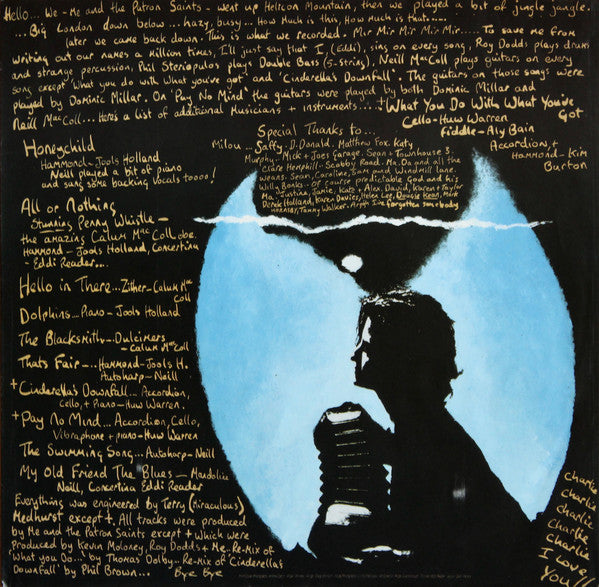 Hello.. We - Me and the Patron Saints - went up Helicon Mountain, then we played a bit of jungle jangle.
... Big London down below ... hazy, busy... How much is this, How much is that.....
later we came back down. This is what we recorded. Mir Mir Mir Mir..... To save me from
writing out our names a Million times, I'll just say that I, (Eddi), sing on every song, Roy Dodds plays drums
and strange percussion, Phil Steriopulos plays Double Bass (5-String), Neill MacColl plays guitars on every
song except 'What you do with what you've got' and 'Cinderella's Downfall'. The guitars on those songs were
played by Dominic Millar. On 'Pay No Mind' the guitars were played by both Dominic Millar and
Neill MacColl... Here's a list of additional Musicians + instruments....
+What You Do With What You've Got
Cello - Huw Warren
Fiddle - Aly Bain
Accordion, + Hammond - Kim Burton
Honeychild
Hammond - Jools Holland
Neill played a bit of piano
and sang some backing vocals toooo!
All or Nothing
Stunning Penny Whistle -
the amazing Calum MacColl
Hammond - Jools Holland, Concertina
- Eddi Reader...
Hello in There... Zither - Calum MacColl
Dolphins... Piano - Jools Holland
The Blacksmith... Dulcimers
- Calum MacColl
Thats Fair.... Hammond - Jools H.
Autoharp - Neill
+Cinderella's Downfall... Accordion,
Cello, + Piano - Huw Warren.
+Pay No Mind... Accordion, Cello,
Vibraphone + piano - Huw Warren
The Swimming Song... Autoharp - Neill
My Old Friend The Blues - Mandolin
Neill, Concertina Eddi Reader
Everything was engineered by Terry (Miraculous)
Medhurst except +. All tracks were produced
by Me and the Patron Saints except + which were
Produced by Kevin Moloney, Roy Dodds + Me.. Re-Mix of
'What you Do...' by Thomas Dolby.. Re-mix of 'Cinderella's
Downfall' by Phil Brown... Bye Bye
Special Thanks to...
Milou... Saffy. D. Donald. Matthew Fox. Katy
Murphy. Mick + Joes Garage. Sean + Townhouse 3.
Clare Hemphill - Scabby Road. Ma, Da and all the
weans. Sean, Caroline, Sam and Windmill lane.
Willy Banks. Of course predictable God and his
Ma, Justine, Jamie, Kate + Alex, David, Karen + Taylor
Derek Holland, Karen Davies, Helen Lee, Dougie Kean, Mark
Tammy Walker. Arpff I've forgotten somebody
Charlie
Charlie
Charlie
Charlie
Charlie
Charlie
I Love
You!!